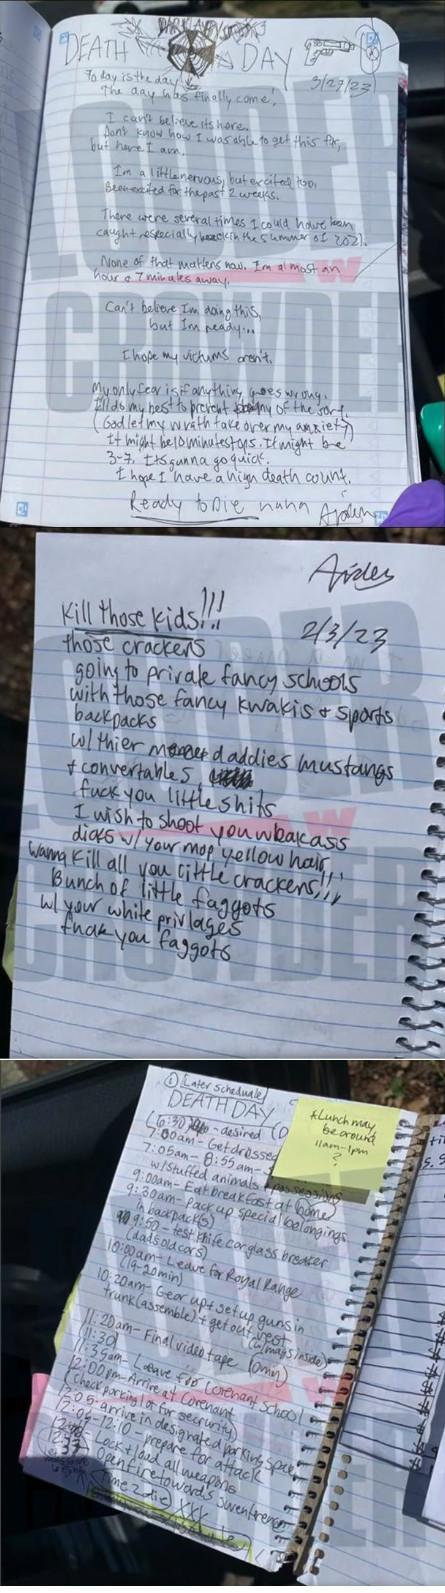 DEATH DAY
3/27/23
Today is the day
The day has finally come!
I can't believe its here.
Dont know how I was able to get this far,
but here I am.
I'm a little nervous, but excited too.
Been excited for the past 2 weeks.
There were several times I could have been
caught especially back in the summer of 2021.
None of that matters now. I'm almost an
hour & 7 minutes away.
Can't believe I'm doing this,
but I'm ready...
I hope my victums arent.
My only fear is if anything goes wrong.
I'll do my best to prevent any of the sort.
(God let my wrath take over my anxiety)
It might be 10 minutes tops. It might be
3-7. Its gunna go quick.
I hope I have a high death count.
Ready to Die haha Aiden
Aiden
2/3/23
Kill those kids!!!
those crackers
going to private fancy schools
with those fancy khakis + sports
backpacks
w/ thier daddies mustangs
+ convertables
fuck you little shits
I wish to shoot you weakass
dicks w/ your mop yellow hair
wanna kill all you little crackers!!!
Bunch of little faggots
w/ your white privlages
fuck you faggots
Later schedual
DEATH DAY
6:30 - desired
7:00am - Get dressed
7:05am - 8:55am -
w/ stuffed animals + possessions
9:00am - Eat breakfast at home
9:30am - Pack up special belongings
in backpack(s)
9:50 - test knife car glass breaker
(dads old cars)
10:00am - Leave for Royal Range
(19-20min)
10:20am - Gear up + set up guns in
trunk (assemble) + get out vest
(6 mags inside)
11:20am - Final video tape
11:35am - Leave for Covenant School
12:00pm - Arrive at Covenant
(check parking lot for security)
12:05 - arrive in designated parking space
12:05-12:10 - prepare for attack
Lock + load all weapons
12:33
Open fire towards
Time 2 die
XXX
+ Lunch may
be around
11am-1pm
?